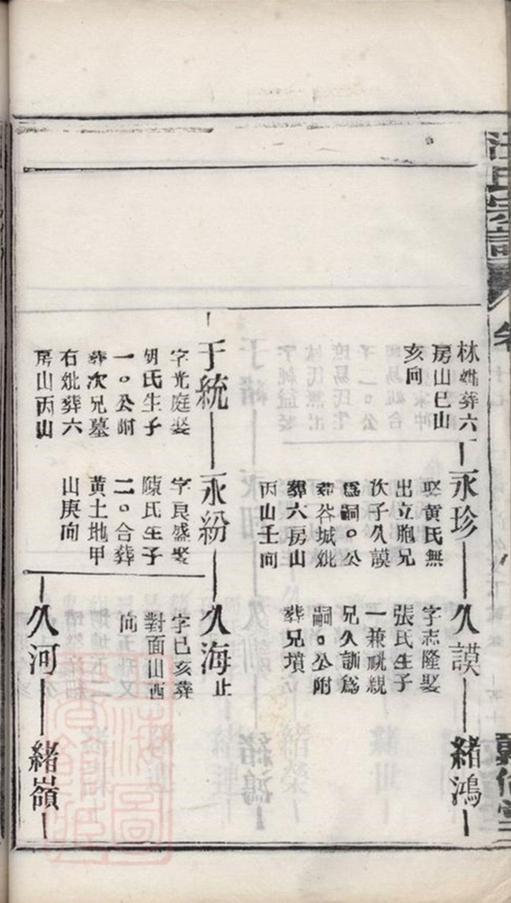 汪氏宗譜
林妣葬六
房山巳山
亥向
永珍
娶黄氏無
出立胞兄
次子久謨
爲嗣。公
葬谷城妣
葬六房山
丙山壬向
久謨
字志隆娶
張氏生子
一兼祧親
兄久訓爲
嗣。公附
葬兄墳
緒鴻
于統
字光庭娶
明氏生子
一。公附
葬次兄墓
右妣葬六
房山丙山
永紛
字良盛娶
陳氏生子
二。合葬
黄土地甲
山庚向
久海止
字已亥葬
對面山西
向
久河
緒嶺